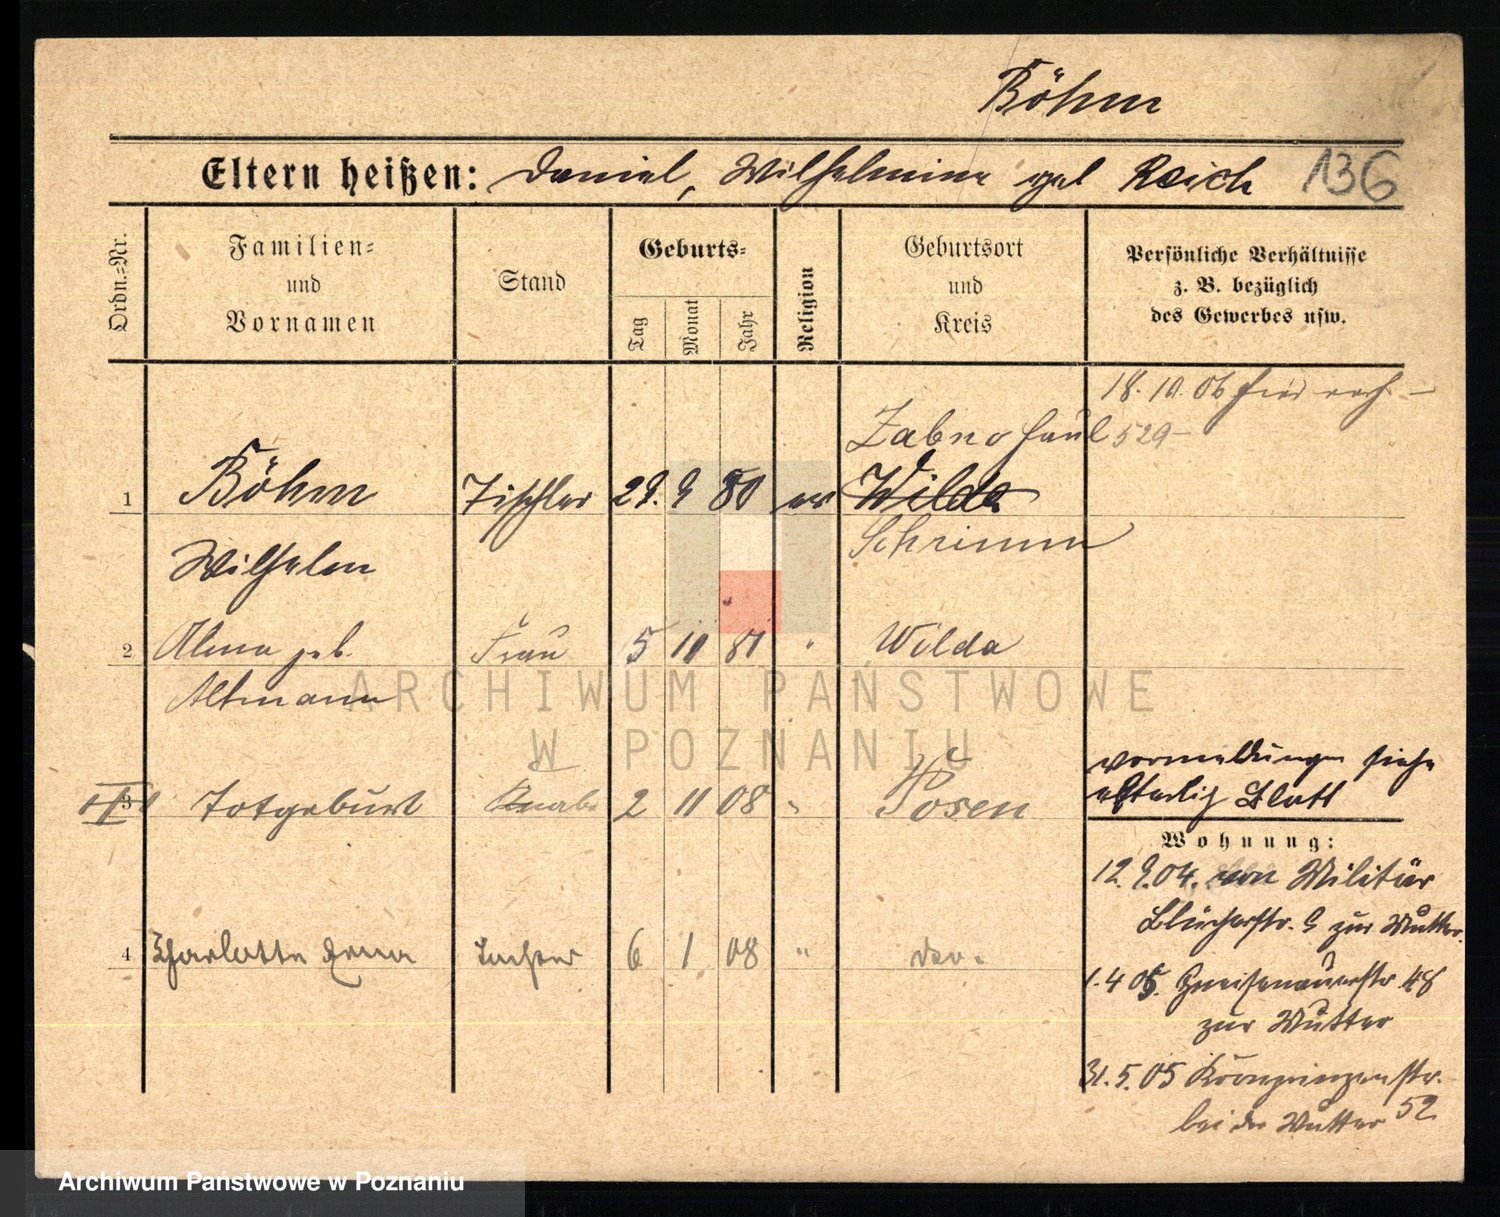 Böhm
Eltern heißen: Daniel, Wilhelmine geb Reich 136
Ordn.=Nr.
Familien=
und
Vornamen
Stand
Geburts=
Tag
Monat
Jahr
Religion
Geburtsort
und
Kreis
Persönliche Verhältnisse
z. B. bezüglich
des Gewerbes usw.
18. 10. 06
Zabno 529
1 Böhm Tischler 29. 9 80 ev Wilda
Wilhelm Schrimm
2 Alma geb. Frau 5 11 81 " Wilda
Altmann
Vormeldungen siehe
3 Totgeburt Knabe 2 11 08 " Posen
elterlich Blatt
Wohnung:
12. 9. 04. von Militär
Blücherstr. 9 zur Mutter.
4 Charlotte Erna Tochter 6 1 08 "
1. 4 05. Gneisenauerstr 48
zur Mutter
31. 5. 05 Kronprinzenstr.
bei der Mutter 52
ARCHIWUM PAŃSTWOWE
W POZNANIU
Archiwum Państwowe w Poznaniu